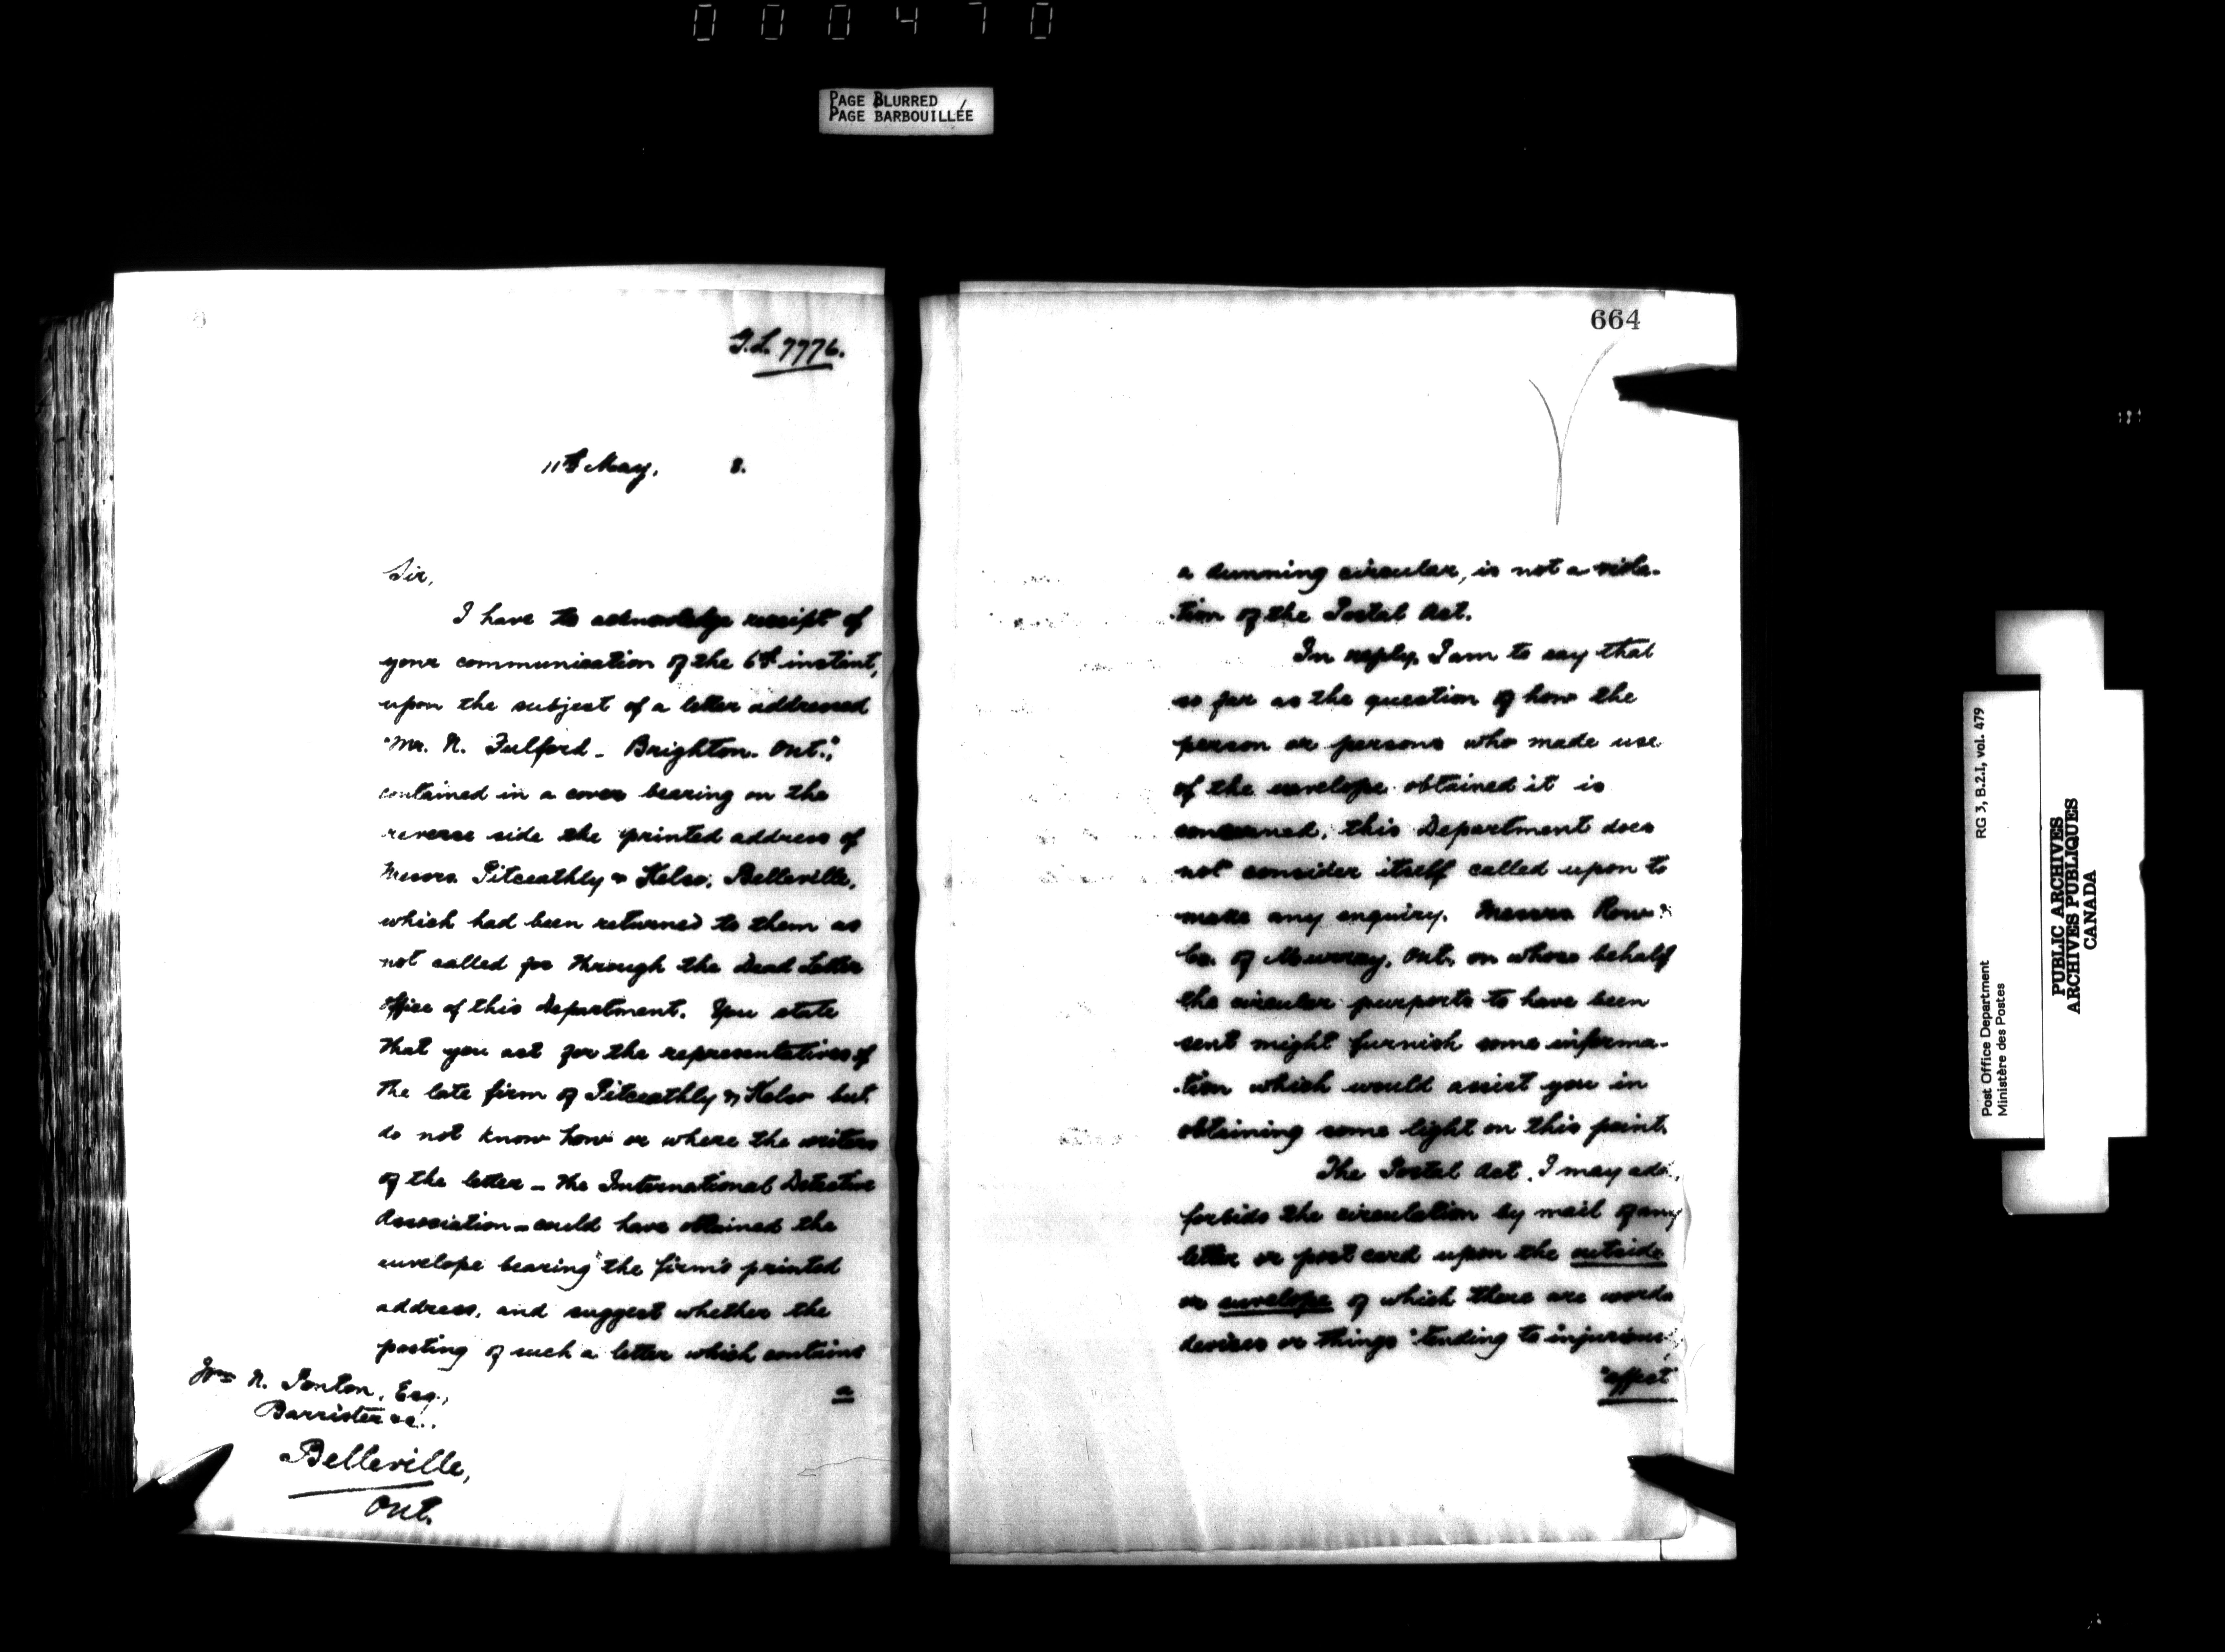 000470
PAGE BLURRED
PAGE BARBOUILLÉE
G.L. 7776.
11th May, 8.
Sir,
I have to acknowledge receipt of
your communication of the 6th instant,
upon the subject of a letter addressed
"Mr. N. Fulford - Brighton. Ont.",
contained in a cover bearing on the
reverse side the printed address of
Messrs. Pitceathly & Kelso, Belleville,
which had been returned to them as
not called for through the Dead Letter
Office of this Department. You state
that you act for the representatives of
the late firm of Pitceathly & Kelso but
do not know how or where the writers
of the letter - the International Detective
Association - could have obtained the
envelope bearing the firm's printed
address, and suggest whether the
posting of such a letter which contains
a
Wm. N. Ponton, Esq.,
Barrister &c.,
Belleville,
Ont.
664
a dunning circular, is not a viola-
tion of the Postal Act.
In reply, I am to say that
so far as the question of how the
person or persons who made use
of the envelope obtained it is
concerned, this Department does
not consider itself called upon to
make any enquiry. Messrs. Row &
Co. of Murray, Ont. on whose behalf
the circular purports to have been
sent might furnish some informa-
tion which would assist you in
obtaining some light on this point.
The Postal Act, I may add,
forbids the circulation by mail of any
letter or post card upon the outside
or envelope of which there are words
devices or things "tending to injurious
"effect
Post Office Department RG 3, B.2.I, vol. 479
Ministère des Postes
PUBLIC ARCHIVES
ARCHIVES PUBLIQUES
CANADA